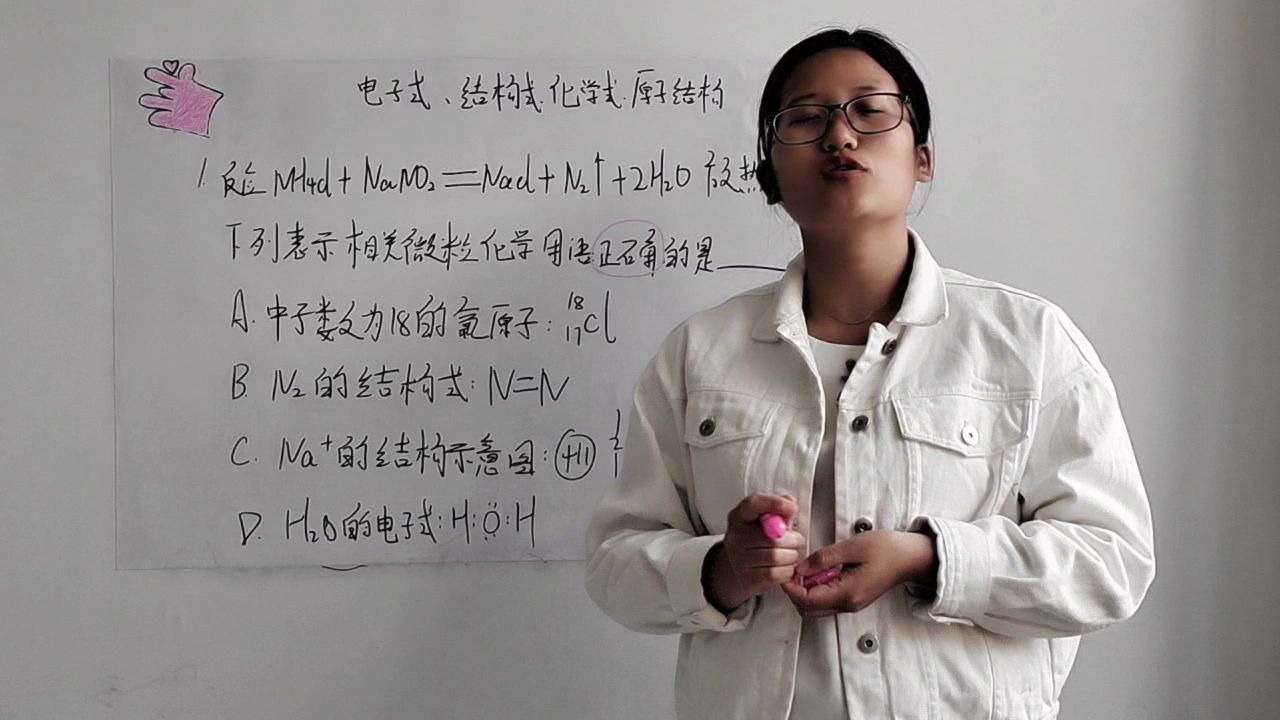 电子式、结构式、化学式、原子结构
1. 反应NH4Cl+NaNO2=NaCl+N2↑+2H2O 放热
下列表示相关微粒化学用语正确的是____
A. 中子数为18的氯原子: ¹⁸₁₇Cl
B. N2的结构式: N=N
C. Na⁺的结构示意图: +11
D. H2O的电子式: H:Ö:H